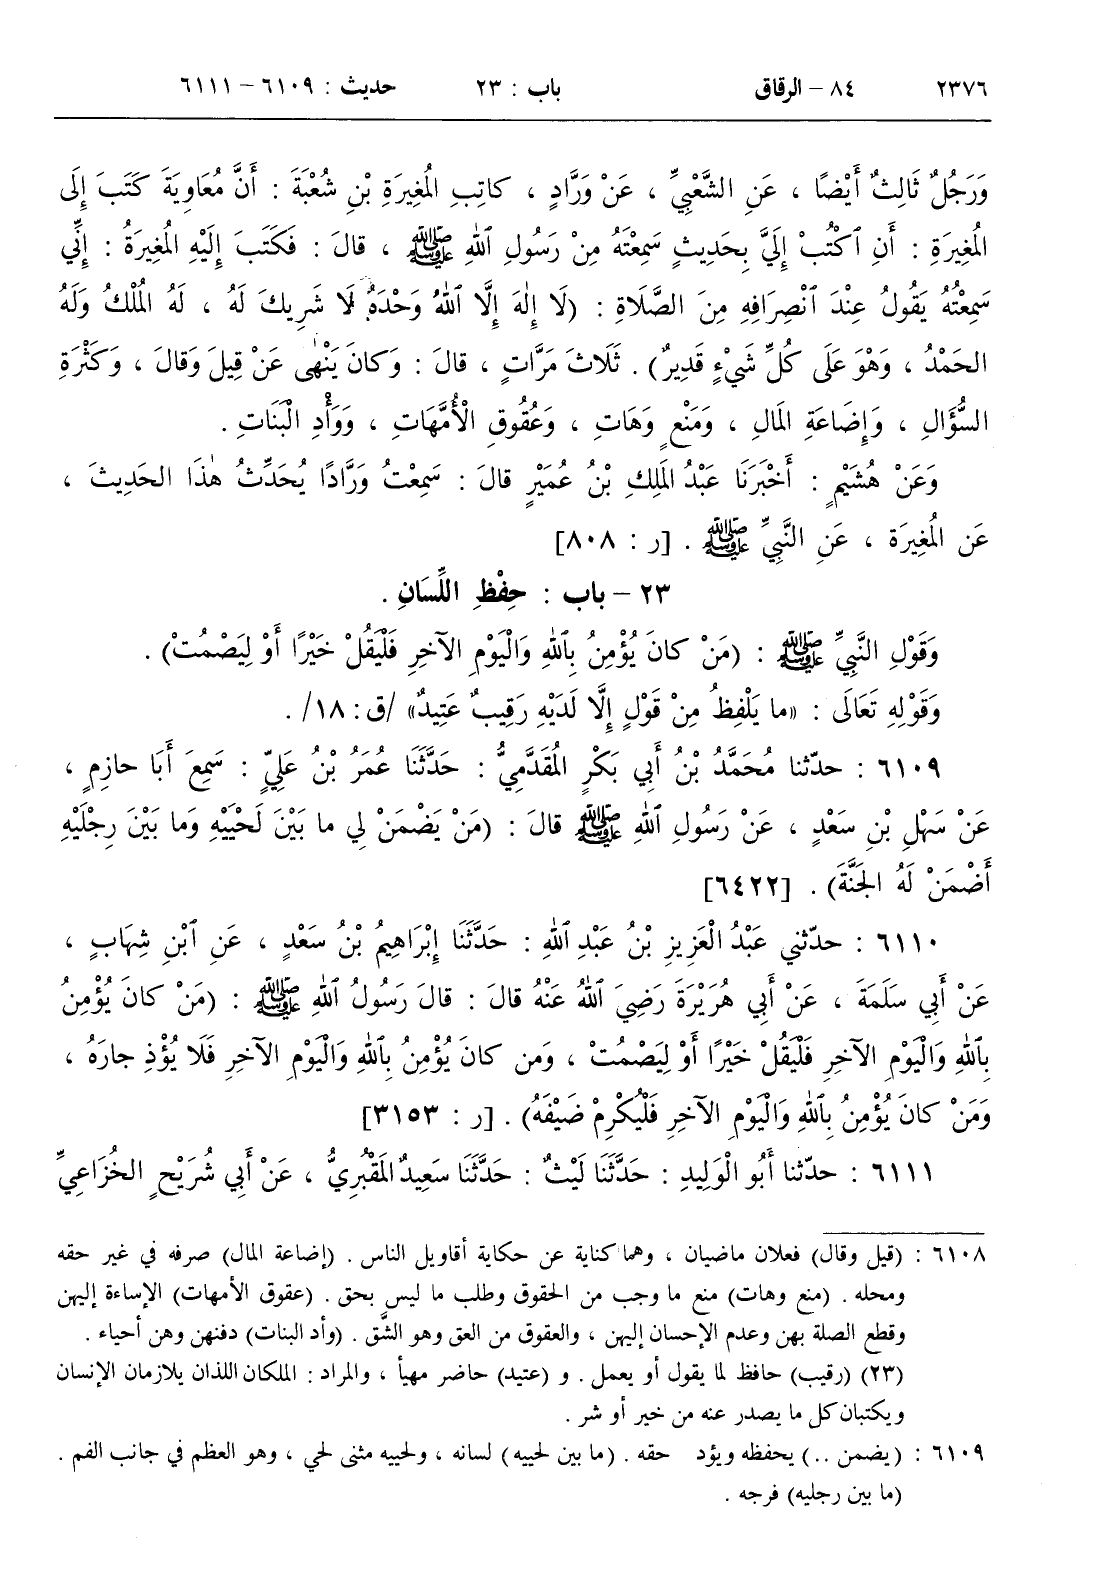 ٢٣٧٦ ٨٤ – الرقاق باب : ٢٣ حديث : ٦١٠٩ – ٦١١١
وَرَجُلٌ ثَالِثٌ أَيْضًا ، عَنِ الشَّعْبِيِّ ، عَنْ وَرَّادٍ ، كاتِبِ المُغِيرَةِ بْنِ شُعْبَةَ : أَنَّ مُعَاوِيَةَ كَتَبَ إِلَى
المُغِيرَةِ : أَنِ ٱكْتُبْ إِلَيَّ بِحَدِيثٍ سَمِعْتَهُ مِنْ رَسُولِ ٱللهِ ﷺ ، قالَ : فَكَتَبَ إِلَيْهِ المُغِيرَةُ : إِنِّي
سَمِعْتُهُ يَقُولُ عِنْدَ ٱنْصِرَافِهِ مِنَ الصَّلَاةِ : (لَا إِلٰهَ إِلَّا ٱللهُ وَحْدَهُ لَا شَرِيكَ لَهُ ، لَهُ المُلْكُ وَلَهُ
الحَمْدُ ، وَهْوَ عَلَى كُلِّ شَيْءٍ قَدِيرٌ) . ثَلَاثَ مَرَّاتٍ ، قالَ : وَكانَ يَنْهٰى عَنْ قِيلَ وَقالَ ، وَكَثْرَةِ
السُّؤَالِ ، وَإِضَاعَةِ المَالِ ، وَمَنْعٍ وَهَاتِ ، وَعُقُوقِ الْأُمَّهَاتِ ، وَوَأْدِ الْبَنَاتِ .
وَعَنْ هُشَيْمٍ : أَخْبَرَنَا عَبْدُ المَلِكِ بْنُ عُمَيْرٍ قالَ : سَمِعْتُ وَرَّادًا يُحَدِّثُ هٰذَا الحَدِيثَ ،
عَنِ المُغِيرَةِ ، عَنِ النَّبِيِّ ﷺ . [ر : ٨٠٨]
٢٣ – باب : حِفْظِ اللِّسَانِ .
وَقَوْلِ النَّبِيِّ ﷺ : (مَنْ كانَ يُؤْمِنُ بِٱللهِ وَالْيَوْمِ الآخِرِ فَلْيَقُلْ خَيْرًا أَوْ لِيَصْمُتْ) .
وَقَوْلِهِ تَعَالَى : «ما يَلْفِظُ مِنْ قَوْلٍ إِلَّا لَدَيْهِ رَقِيبٌ عَتِيدٌ» /ق : ١٨/ .
٦١٠٩ : حدّثنا مُحَمَّدُ بْنُ أَبِي بَكْرٍ المُقَدَّمِيُّ : حَدَّثَنَا عُمَرُ بْنُ عَلِيٍّ : سَمِعَ أَبَا حازِمٍ ،
عَنْ سَهْلِ بْنِ سَعْدٍ ، عَنْ رَسُولِ ٱللهِ ﷺ قالَ : (مَنْ يَضْمَنْ لِي ما بَيْنَ لَحْيَيْهِ وَما بَيْنَ رِجْلَيْهِ
أَضْمَنْ لَهُ الجَنَّةَ) . [٦٤٢٢]
٦١١٠ : حدّثني عَبْدُ الْعَزِيزِ بْنُ عَبْدِ ٱللهِ : حَدَّثَنَا إِبْرَاهِيمُ بْنُ سَعْدٍ ، عَنِ ٱبْنِ شِهَابٍ ،
عَنْ أَبِي سَلَمَةَ ، عَنْ أَبِي هُرَيْرَةَ رَضِيَ ٱللهُ عَنْهُ قالَ : قالَ رَسُولُ ٱللهِ ﷺ : (مَنْ كانَ يُؤْمِنُ
بِٱللهِ وَالْيَوْمِ الآخِرِ فَلْيَقُلْ خَيْرًا أَوْ لِيَصْمُتْ ، وَمَن كانَ يُؤْمِنُ بِٱللهِ وَالْيَوْمِ الآخِرِ فَلَا يُؤْذِ جارَهُ ،
وَمَنْ كانَ يُؤْمِنُ بِٱللهِ وَالْيَوْمِ الآخِرِ فَلْيُكْرِمْ ضَيْفَهُ) . [ر : ٣١٥٣]
٦١١١ : حدّثنا أَبُو الْوَلِيدِ : حَدَّثَنَا لَيْثٌ : حَدَّثَنَا سَعِيدٌ المَقْبُرِيُّ ، عَنْ أَبِي شُرَيْحٍ الخُزَاعِيِّ
٦١٠٨ : (قيل وقال) فعلان ماضيان ، وهما كناية عن حكاية أقاويل الناس . (إضاعة المال) صرفه في غير حقه
ومحله . (منع وهات) منع ما وجب من الحقوق وطلب ما ليس بحق . (عقوق الأمهات) الإساءة إليهن
وقطع الصلة بهن وعدم الإحسان إليهن ، والعقوق من العق وهو الشَّق . (وأد البنات) دفنهن وهن أحياء .
(٢٣) (رقيب) حافظ لما يقول أو يعمل . و (عتيد) حاضر مهيأ ، والمراد : الملكان اللذان يلازمان الإنسان
ويكتبان كل ما يصدر عنه من خير أو شر .
٦١٠٩ : (يضمن ..) يحفظه ويؤد حقه . (ما بين لحييه) لسانه ، ولحييه مثنى لحي ، وهو العظم في جانب الفم .
(ما بين رجليه) فرجه .